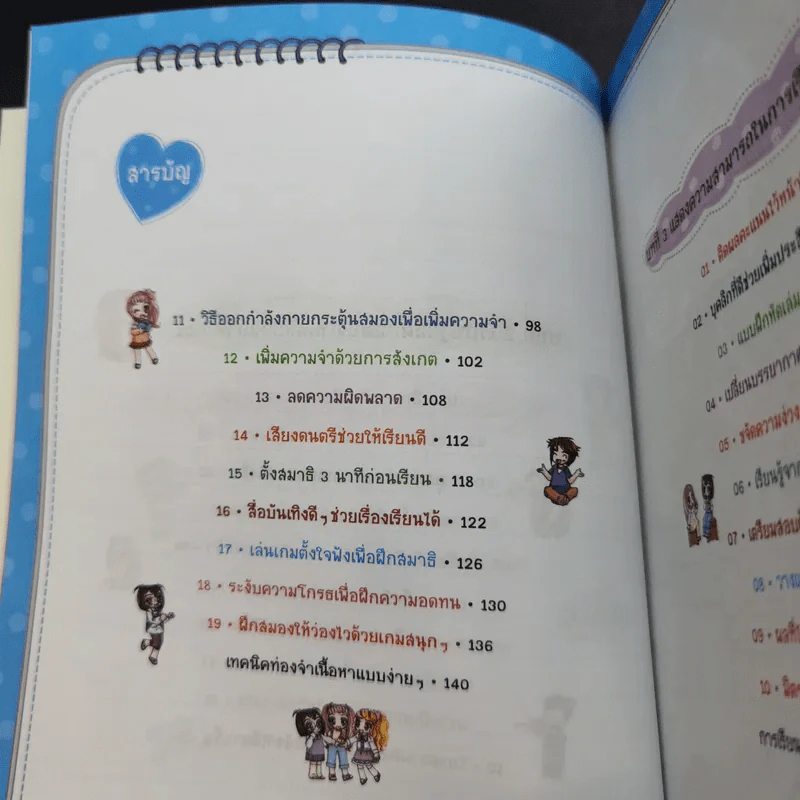 สารบัญ
11 • วิธีออกกำลังกายกระตุ้นสมองเพื่อเพิ่มความจำ • 98
12 • เพิ่มความจำด้วยการสังเกต • 102
13 • ลดความผิดพลาด • 108
14 • เสียงดนตรีช่วยให้เรียนดี • 112
15 • ตั้งสมาธิ 3 นาทีก่อนเรียน • 118
16 • สื่อบันเทิงดีๆ ช่วยเรื่องเรียนได้ • 122
17 • เล่นเกมตั้งใจฟังเพื่อฝึกสมาธิ • 126
18 • ระงับความโกรธเพื่อฝึกความอดทน • 130
19 • ฝึกสมองให้ว่องไวด้วยเกมสนุกๆ • 136
เทคนิคท่องจำเนื้อหาแบบง่ายๆ • 140
บทที่ 3 แสดงความสามารถในการ
01 • ติดผลคะแนนไว้หน้า
02 • บุคลิกที่ดีช่วยเพิ่ม
03 • แบบฝึกหัดเล่ม
04 • เปลี่ยนบรรยากาศ
05 • ขจัดความง่วง
06 • เรียนรู้จาก
07 • เตรียมสอบ
08 •
09 •
10 •
การเรียน